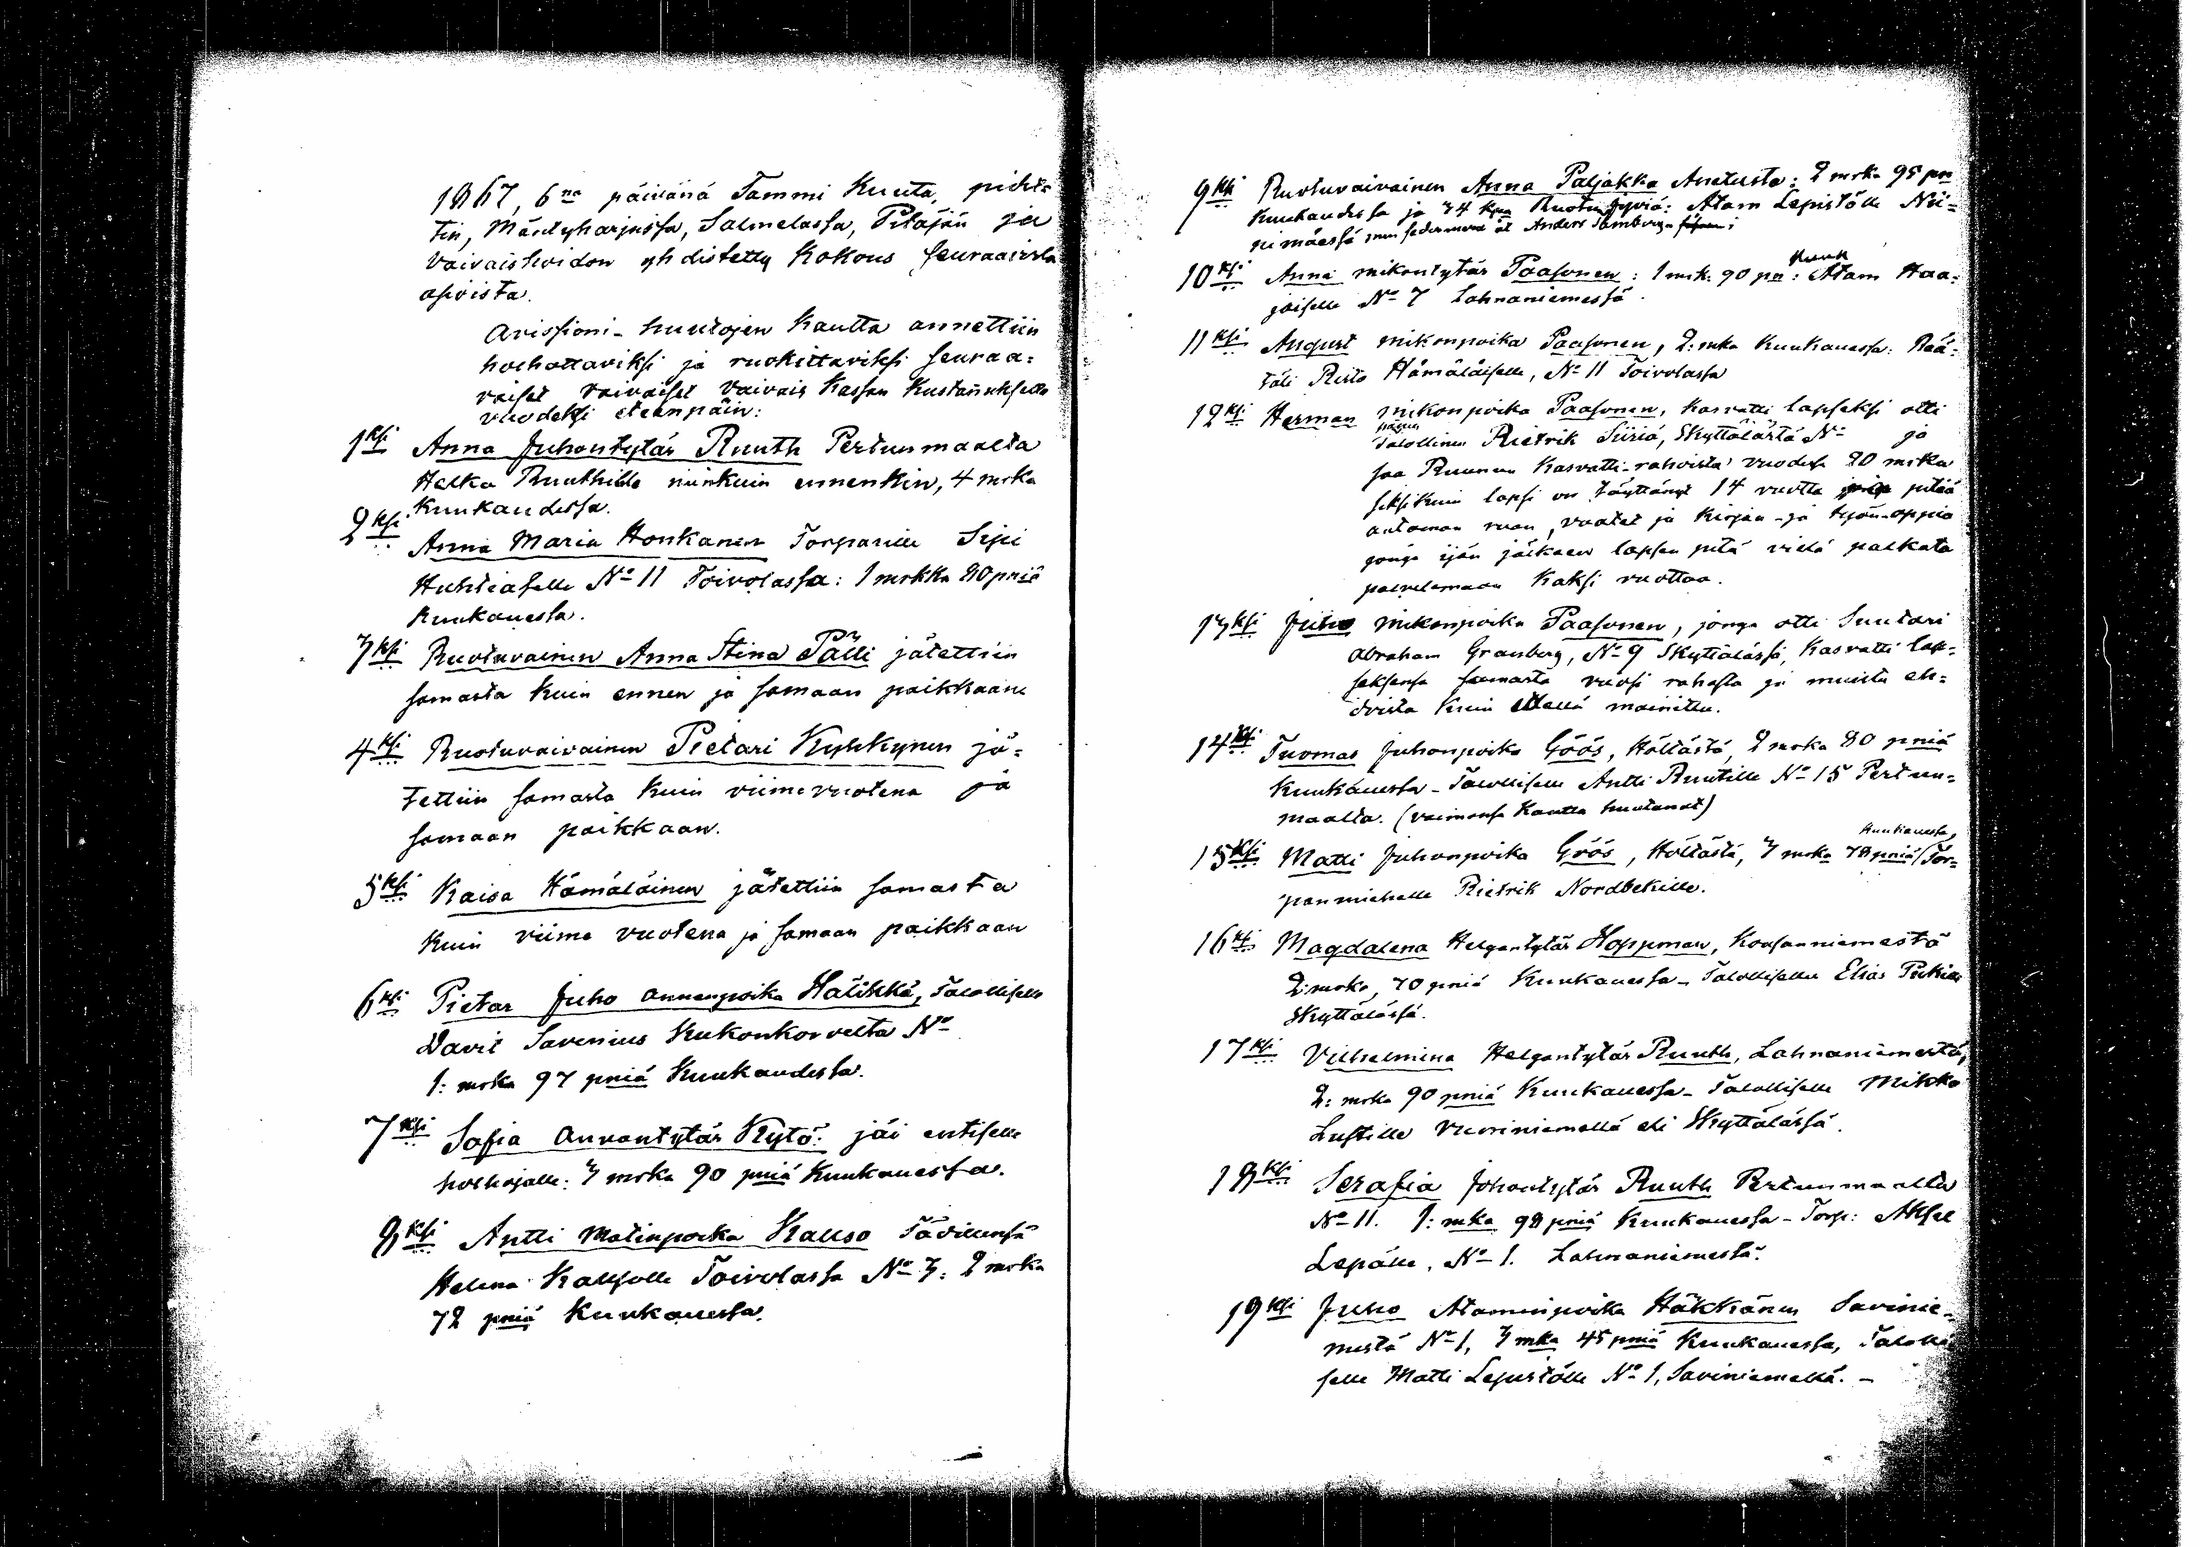 1867, 6na päivänä Tammi Kuuta, pidet-
tiin, Mäntyharjussa, Salmelassa, Pitäjän ja
Vaivaishoidon yhdistetty Kokous seuraavista
asioista.
Avissioni-huutojen Kautta annettiin
holhottaviksi ja ruokittaviksi seuraa=
vaiset vaivaiset Vaivais Kassan Kustannuksella
vuodeksi eteenpäin:
1ksi Anna Juhontytär Ruuth Pertunmaalta
Helka Ruuthille niinkuin ennenkin, 4 mrka
Kuukaudessa.
2ksi Anna Maria Honkanen Torparille Sipi
No 11 Toivolassa: 1 mrkka 80 pniä
Kuukauessa.
3ksi Ruotuvainen Anna Stina Pälli jätettiin
samasta Kuin ennen ja samaan paikkaan
4ksi Ruotuvaivainen Pietari Kyhkynen jä=
tettiin samasta Kuin viimevuotena ja
samaan paikkaan.
5ksi Kaisa Hämäläinen jätettiin samasta
Kuin viime vuotena ja samaan paikkaan
6ksi Pietar Juho Annanpoika Halikka, Talolliselle
Davit Savenius Kukonkorvelta No
1: mrka 97 pniä Kuukaudessa.
7ksi Safia Anvantytär Kytö: jäi entiselle
holhojalle: 3 mrka 90 pniä Kuukauessa.
8ksi Antti Matinpoika Kauso Tädillensä
Helena Toivolassa No 3: 2 mrka
72 pniä Kuukauessa.
9ksi Ruotuvaivainen Anna Paljakka Anetusta: 2 mrka 95 pn
Kuukaudessa ja 34 Kpa Ruotu jyviä: Atam Lepistölle Nii=
nimäessä Anders
10ksi Anna mikontytär Paasonen: 1 mrk: 90 pn: Kuuk Atam Haa=
jaiselle No 7 Lahnaniemessä.
11ksi August mikonpoika Paasonen, 2: mka Kuukauessa: Rää=
täli Risto Hämäläiselle, No 11 Toivolassa
12ksi Herman mikonpoika Paasonen, Kasvatti lapseksi otti
Talollinen Rietrik Siiriä, Skyttälästä No ja
saa Ruunun Kasvatti-rahoista vuodessa 20 mrka
siksikuin lapsi on täyttänyt 14 vuotta pitää
antaman ruan, vaatet ja Kirjan-ja työn-oppia
jonga ijän jälkeen lapsen pitä vielä palkata
palvelemaan Kaksi vuottaa.
13ksi Juho mikonpoika Paasonen, jonga otti Suutari
Abraham Granberg, No 9 Skyttälässä, Kasvatti lap=
seksensa samasta vuosi rahasta ja muista eh=
doista Kuin ettellä mainittu.
14ksi Tuomas Juhonpoika Göös, Höltästä, 2 mrka 80 pniä
Kuukauessa - Talolliselle Antti Ruutille No 15 Pertun=
maalta. (vaimonsa Kautta huutanut)
15ksi Matti Juhonpoika Göös, Höltästä, 3 mrka 78 pniä Kuukauessa, Tor=
panmiehelle Rietrik Nordbekille.
16ksi Magdalena Helgantytär Hoppman, Koirsanniemestä
2: mrka, 70 pniä Kuukauessa - Talolliselle Elias
Skyttälässä.
17ksi Vilhelmina Helgantytär Ruuth, Lahnaniemestä,
2: mrka 90 pniä Kuukauessa - Talolliselle Mikko
Lustille Vuoriniemellä eli Skyttälässä.
18ksi Serafia Johontytär Ruuth Pertunmaalta
No 11. 1: mka 98 pniä Kuukauessa - Torp: Aksel
Lepälle, No 1. Lahnaniemestä.
19ksi Juho Ataminpoika Häkkänen Savinie=
mestä No 1, 3 mka 45 pniä Kuukauessa, Talolli
selle Matti Lepistölle No 1, Saviniemellä. -